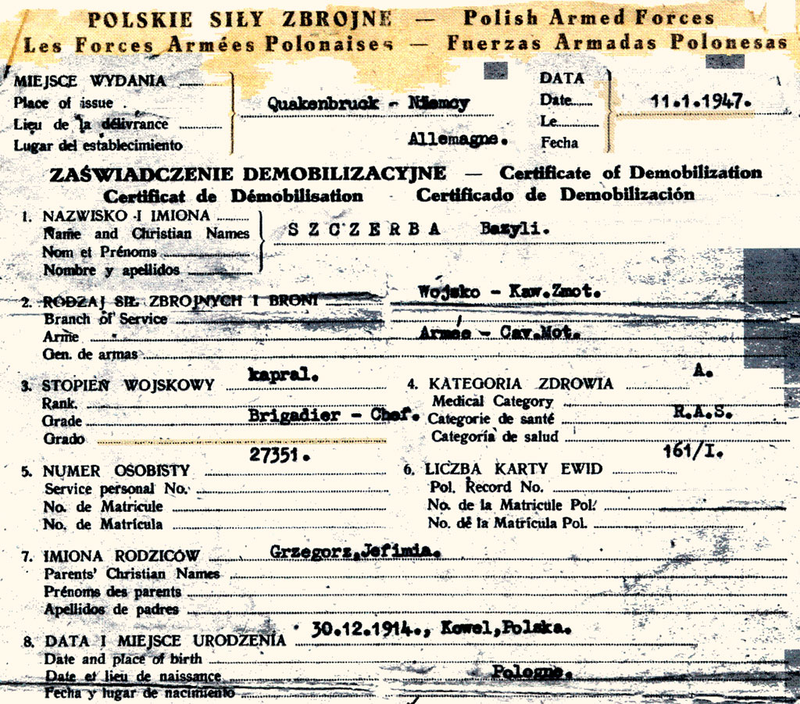 POLSKIE SIŁY ZBROJNE — Polish Armed Forces
Les Forces Armées Polonaises — Fuerzas Armadas Polonesas
MIEJSCE WYDANIA
Place of issue
Lieu de la délivrance
Lugar del establecimiento
Quakenbruck - Niemcy
Allemagne.
DATA
Date
Le
Fecha
11.1.1947.
ZAŚWIADCZENIE DEMOBILIZACYJNE — Certificate of Demobilization
Certificat de Démobilisation Certificado de Demobilización
1. NAZWISKO I IMIONA
Name and Christian Names
Nom et Prénoms
Nombre y apellidos
SZCZERBA Bazyli.
2. RODZAJ SIŁ ZBROJNYCH I BRONI
Branch of Service
Arme
Gen. de armas
Wojsko - Kaw.Zmot.
Armée - Cav.Mot.
3. STOPIEŃ WOJSKOWY
Rank.
Grade
Grado
kapral.
Brigadier - Chef.
4. KATEGORIA ZDROWIA
Medical Category
Categorie de santé
Categoría de salud
A.
R.A.S.
5. NUMER OSOBISTY
Service personal No.
No. de Matricule
No. de Matrícula
27351.
6. LICZBA KARTY EWID
Pol. Record No.
No. de la Matricule Pol.
No. de la Matrícula Pol.
161/I.
7. IMIONA RODZICÓW
Parents' Christian Names
Prénoms des parents
Apellidos de padres
Grzegorz,Jefimia.
8. DATA I MIEJSCE URODZENIA
Date and place of birth
Date et lieu de naissance
Fecha y lugar de nacimiento
30.12.1914., Kowel,Polska.
Pologne.